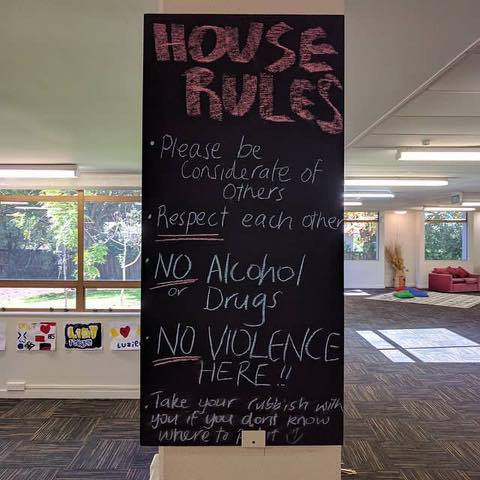 HOUSE
RULES
• Please be
Considerate of
Others
• Respect each other
• NO Alcohol
or
Drugs
• NO VIOLENCE
HERE!!
• Take your rubbish with
you if you don't know
where to it